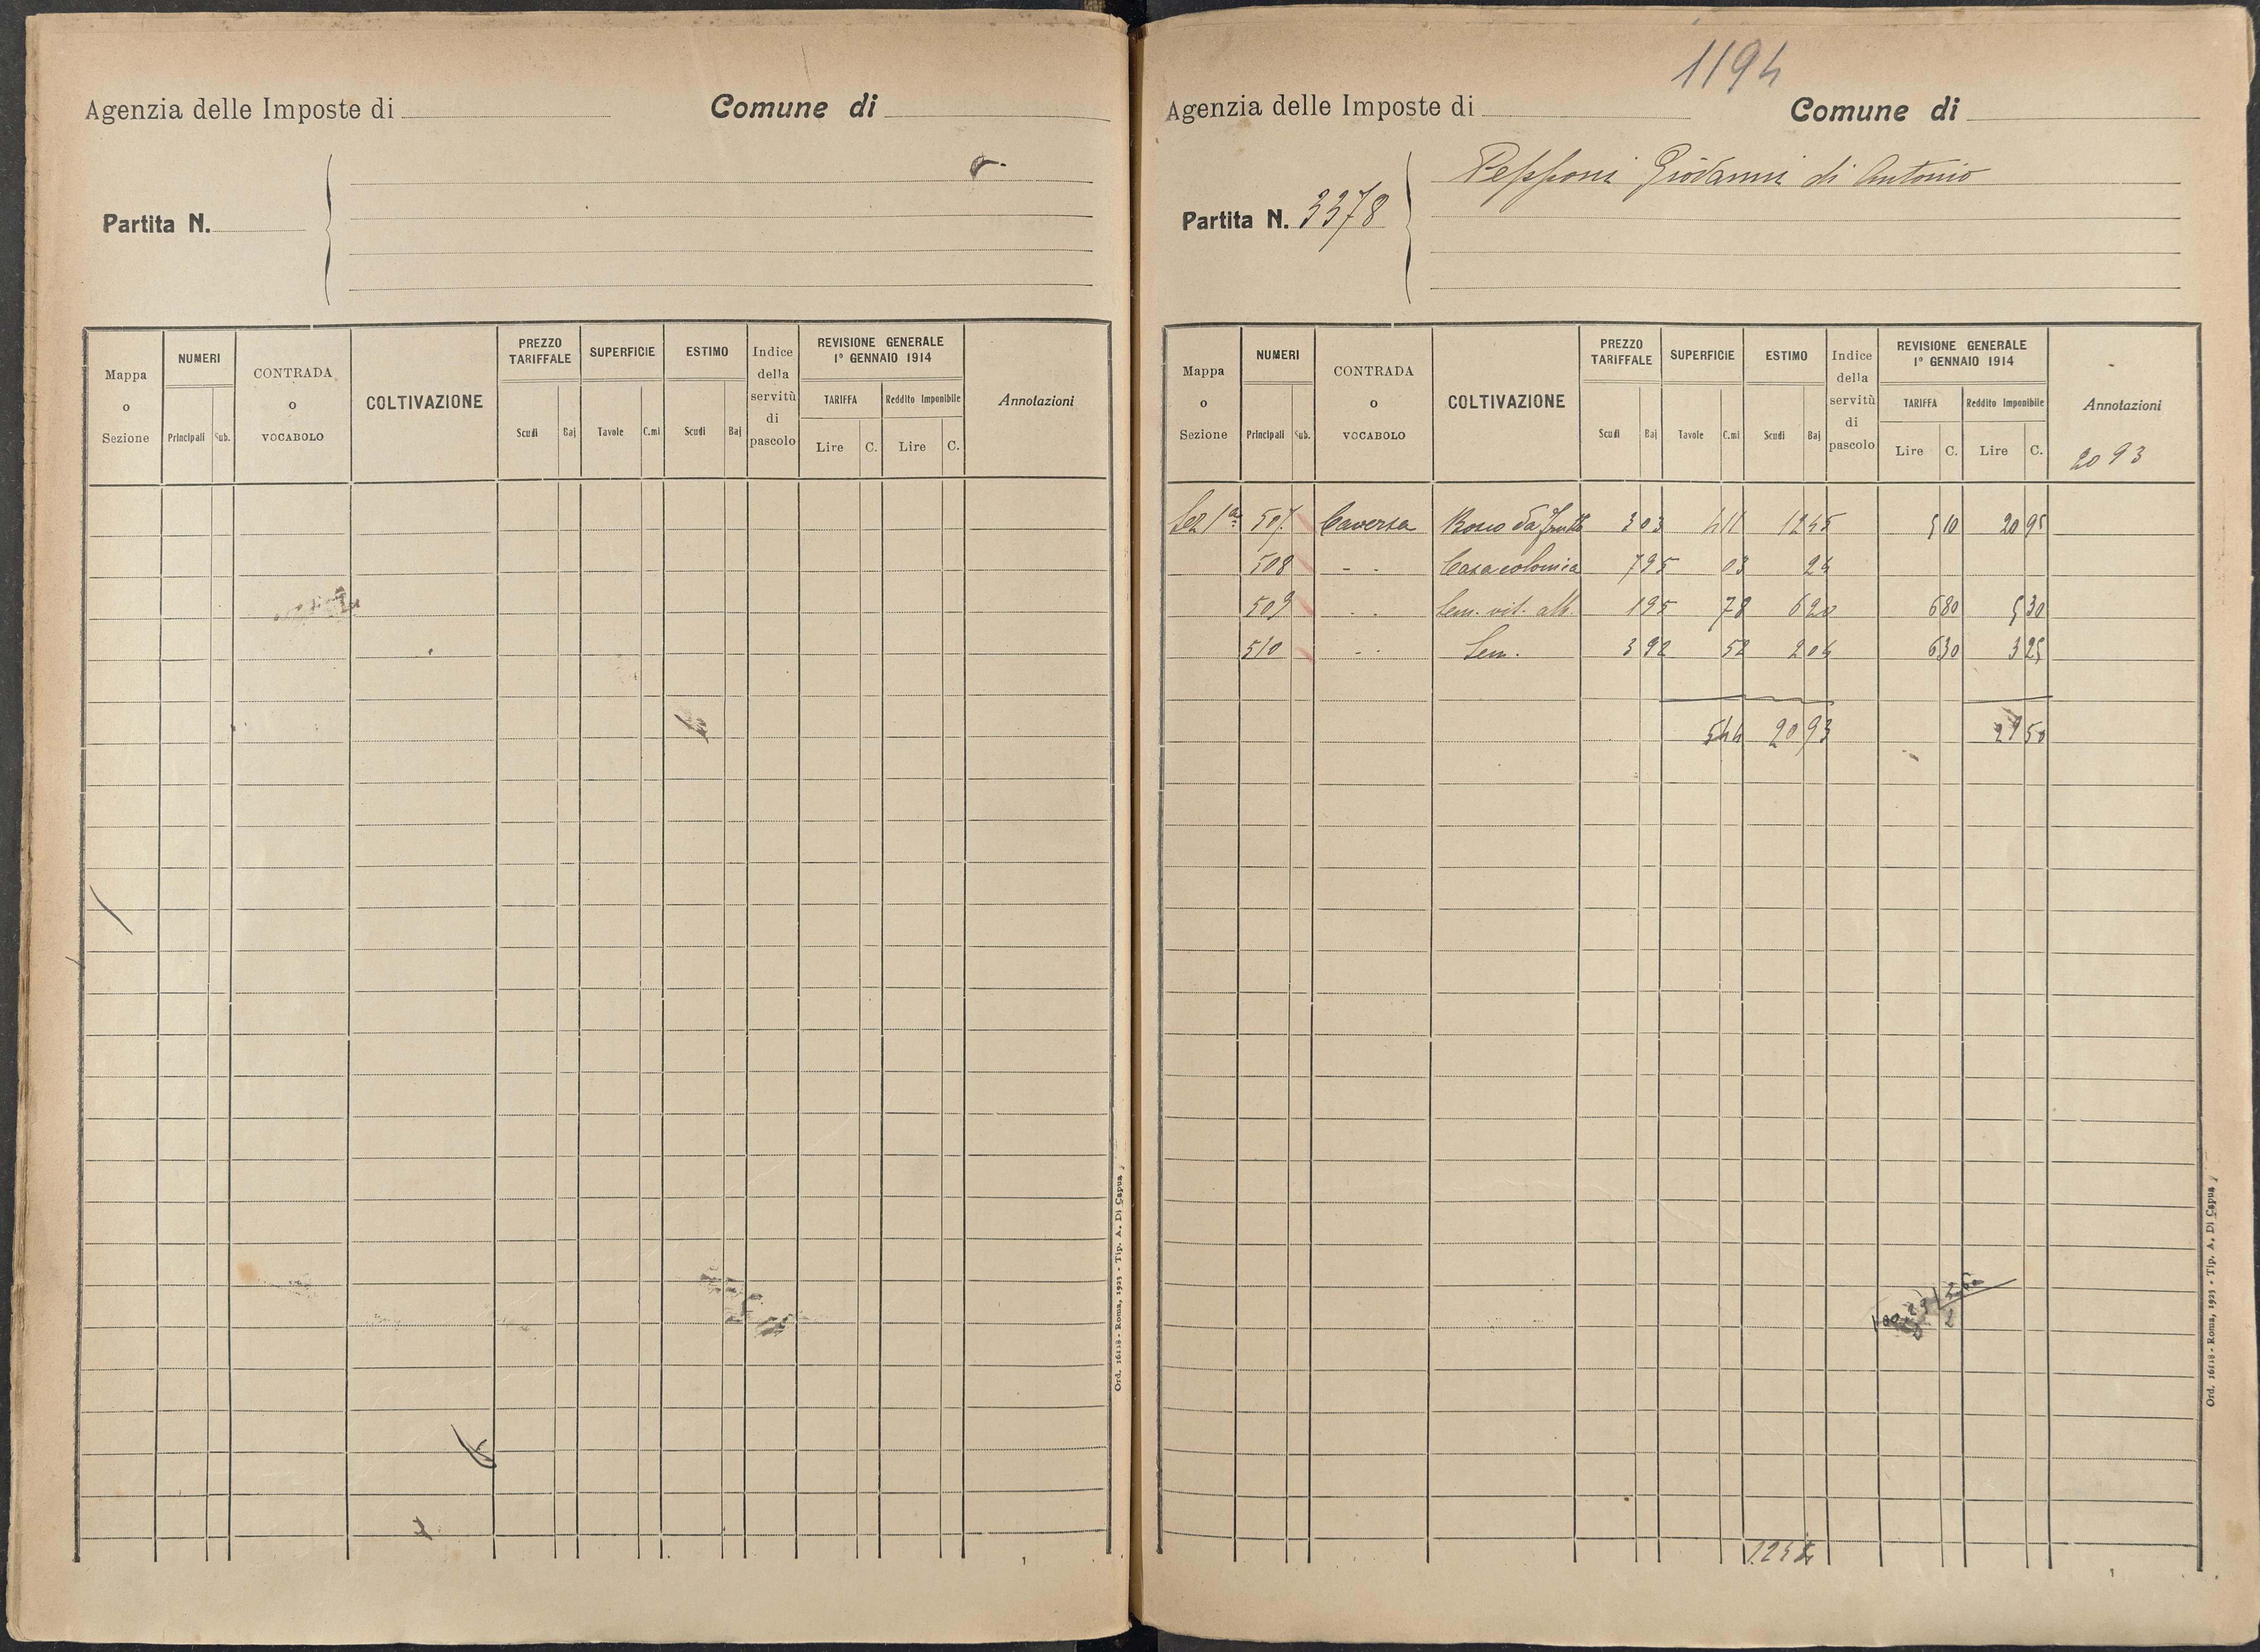 Agenzia delle Imposte di Comune di
Partita N.
Mappa o Sezione NUMERI Principali Sub. CONTRADA o VOCABOLO COLTIVAZIONE PREZZO TARIFFALE Scudi Baj SUPERFICIE Tavole C.mi ESTIMO Scudi Baj Indice della servitù di pascolo REVISIONE GENERALE 1º GENNAIO 1914 TARIFFA Lire C. Reddito Imponibile Lire C. Annotazioni
Ord. 16118 - Roma, 1923 - Tip. A. Di Capua
1194
Agenzia delle Imposte di Comune di
Partita N. 3378 Pepponi Giovanni di Antonio
Mappa o Sezione NUMERI Principali Sub. CONTRADA o VOCABOLO COLTIVAZIONE PREZZO TARIFFALE Scudi Baj SUPERFICIE Tavole C.mi ESTIMO Scudi Baj Indice della servitù di pascolo REVISIONE GENERALE 1º GENNAIO 1914 TARIFFA Lire C. Reddito Imponibile Lire C. Annotazioni
2093
Sez 1ª 507 Caversa Bosco da frutto 3 03 4 11 12 45 5 10 20 95
508 - - Casa colonica 7 95 03 24
509 - - Sem. vit. alb. 7 95 78 6 20 6 80 5 30
510 - - Sem. 3 92 52 2 04 6 30 3 25
5 44 20 93 29 50
Ord. 16118 - Roma, 1923 - Tip. A. Di Capua